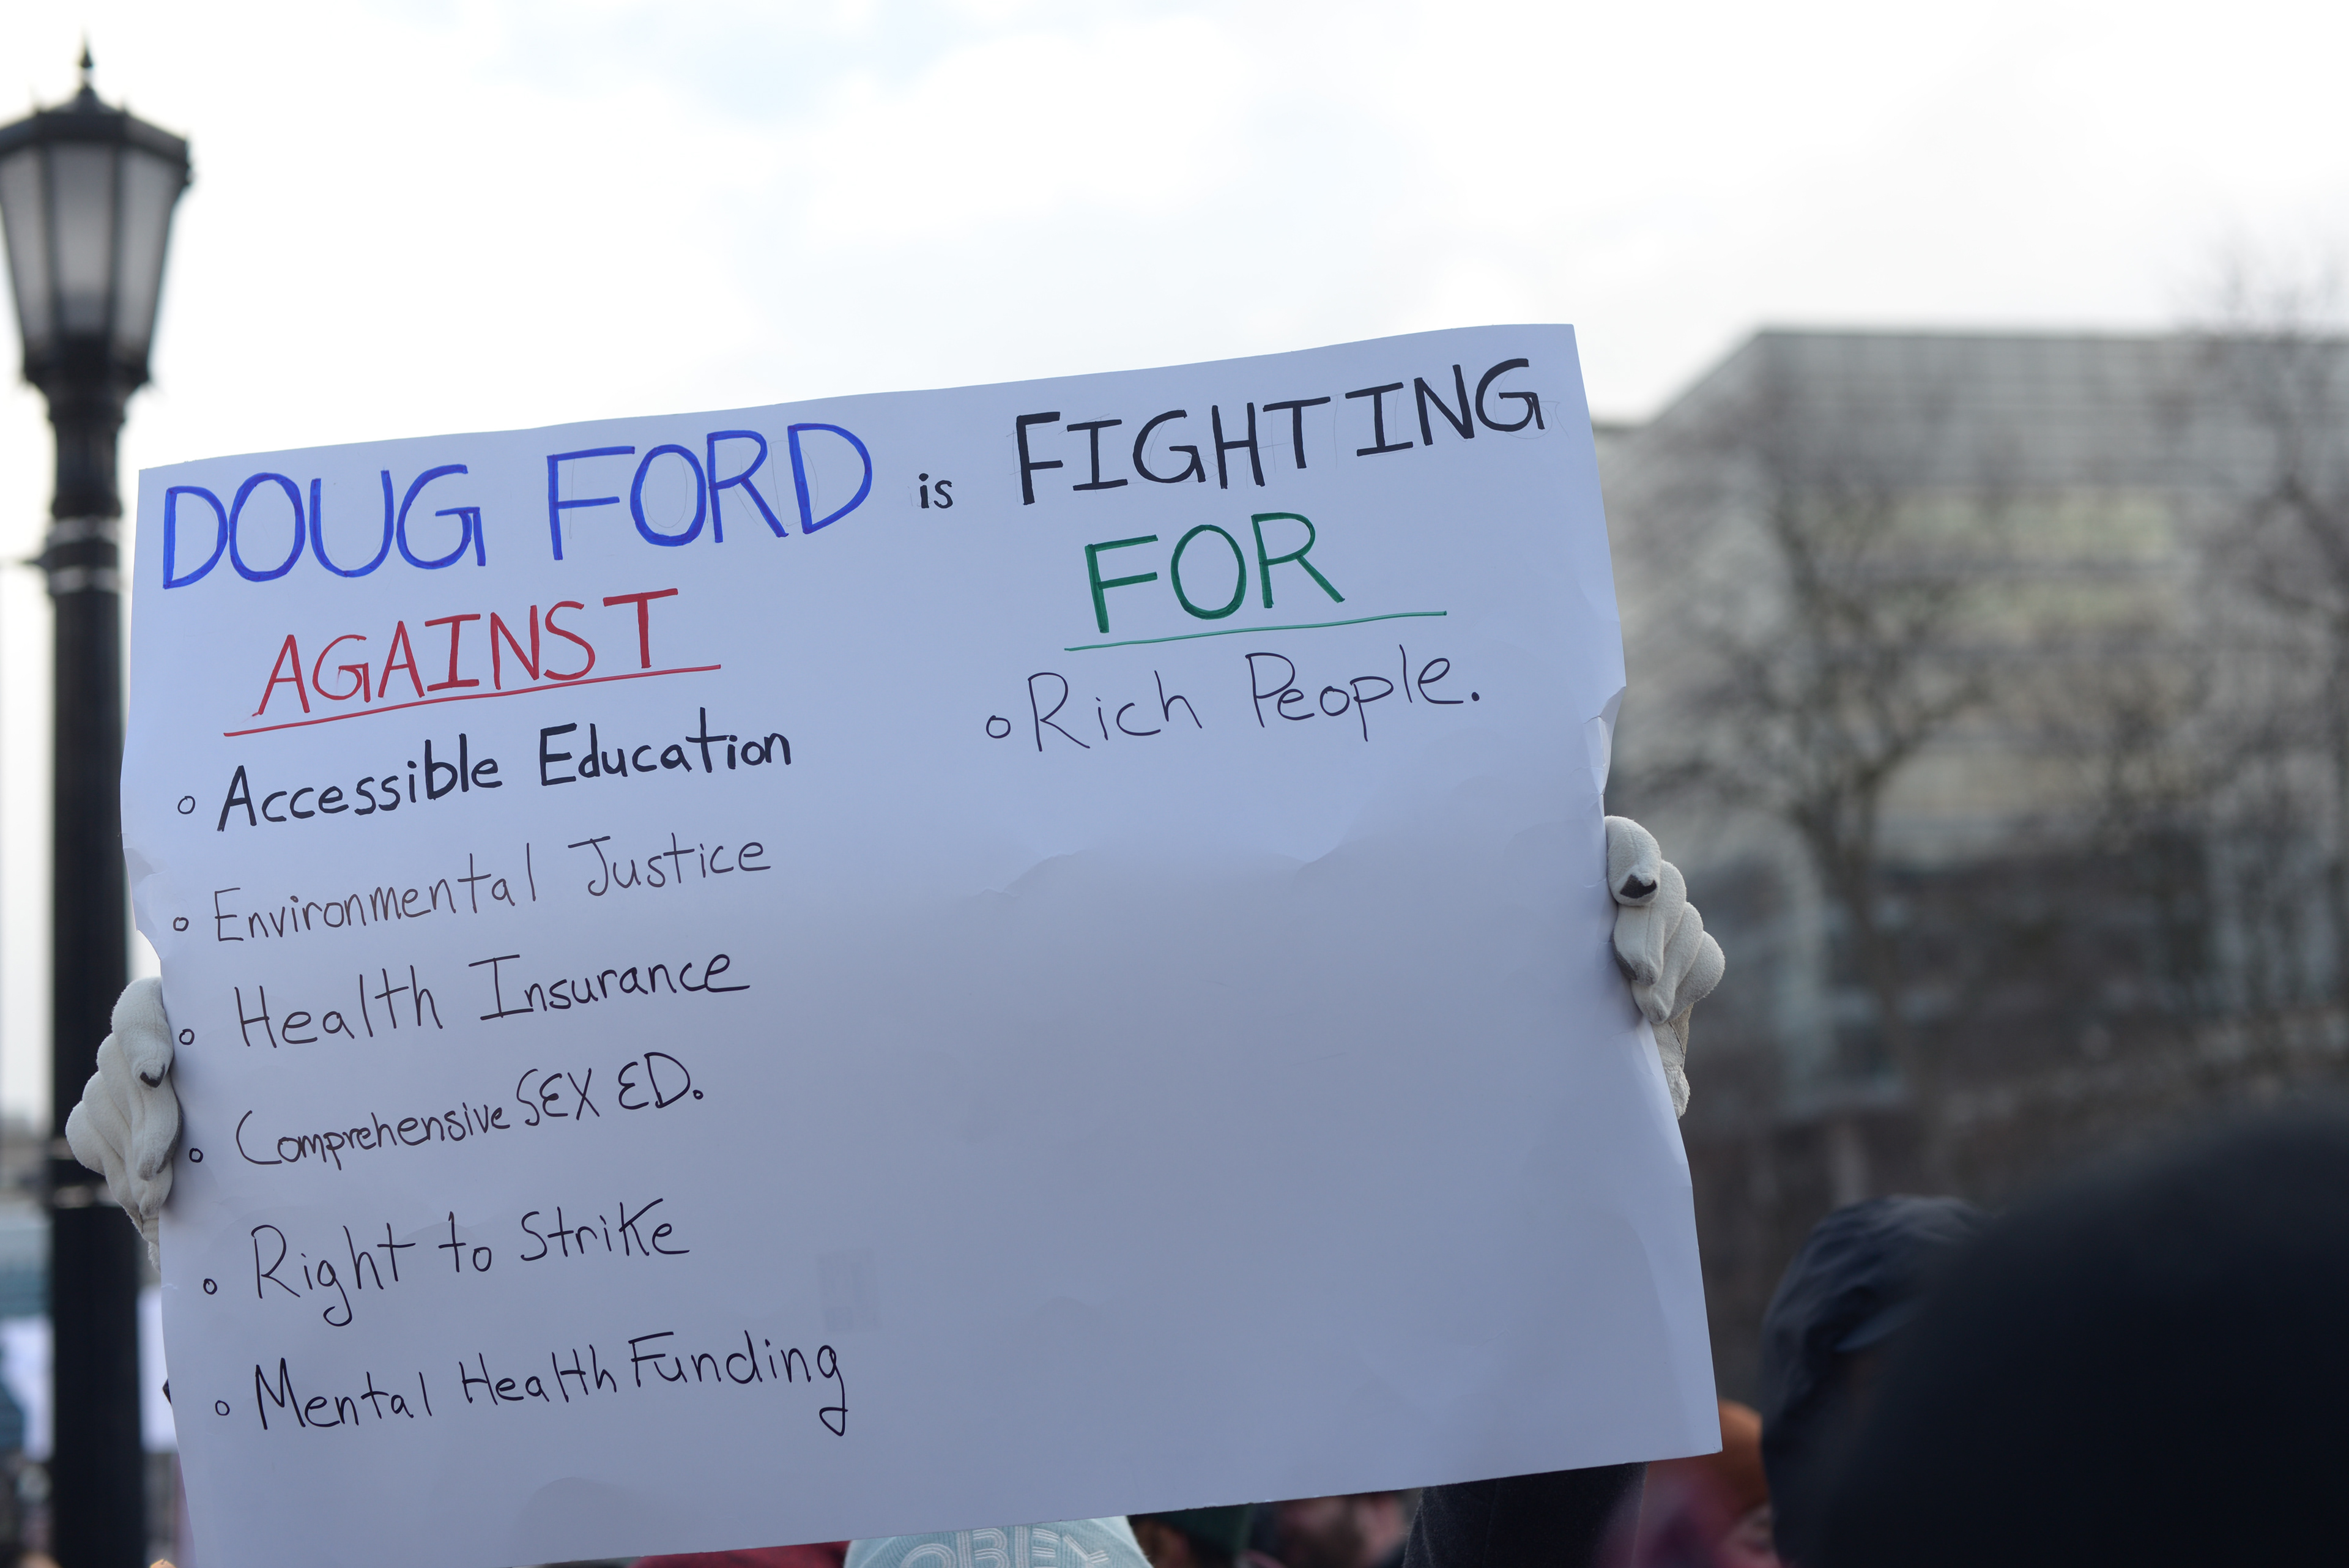 DOUG FORD is FIGHTING
AGAINST
Accessible Education
Environmental Justice
Health Insurance
Comprehensive SEX ED.
Right to Strike
Mental Health Funding
FOR
Rich People.
OBEY